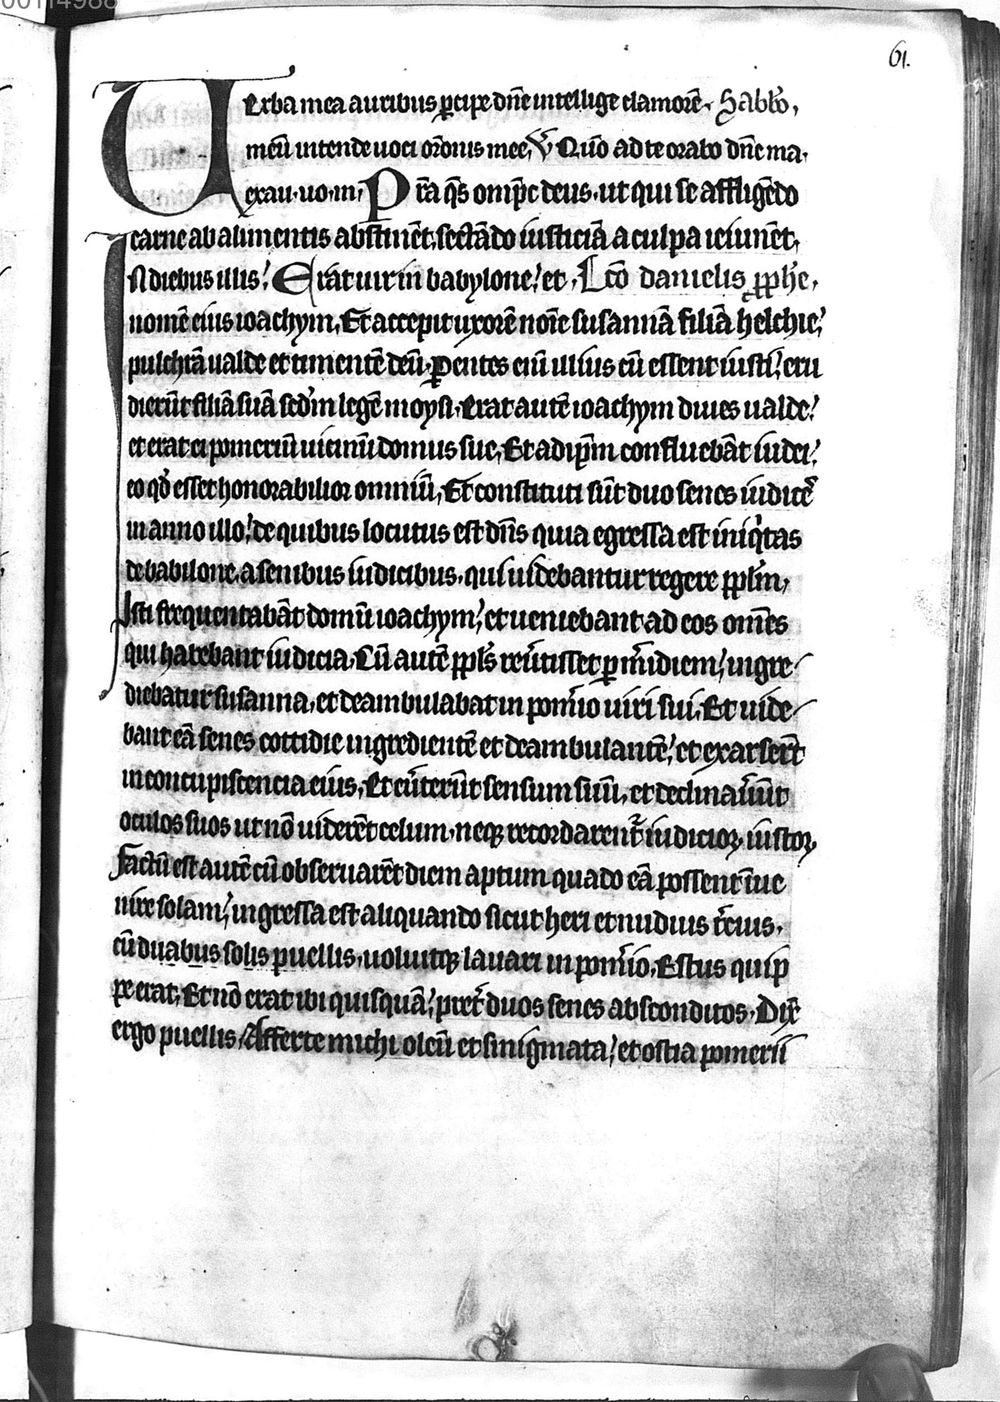 00114988
61.
Verba mea auribus ꝑcipe dn̄e intellige clamorē. Sabb̄o.
meū intende uoci or̄onis mee. V̄. Qn̄o ad te orabo dn̄e ma.
exau. uo. m. Pr̄a q̄s omp̄c deus. ut qui se affligēdo
carne ab alimentis abstinēt. sectādo iusticiā a culpa ieiunēt.
In diebus illis. Erāt uir in babylone. et Lc̄o danielis ꝓph̄e.
nomē eius ioachym. Et accepit uxorē noīe susannā filiā helchie.
pulchrā ualde et timentē deū. Parentes enī illius cū essent iusti. eru
dierūt filiā suā sc̄dm legē moysi. Erat autē ioachym diues ualde.
et erat ei pomeriū uicinū domus sue. Et ad ip̄m confluebāt iudei.
eo qd̄ esset honorabilior omniū. Et constituti sūt duo senes iudicē
in anno illo. de quibus locutus est dn̄s quia egressa est iniq̄tas
de babilone. a senibus iudicibus. qui uidebantur regere pplm̄.
Isti frequentabāt domū ioachym. et ueniebant ad eos om̄es
qui habebant iudicia. Cū autē ppl̄s reūtisset ꝑ m̄idiem. ingre
diebatur susanna. et deambulabat in pom̄io uiri sui. Et uide
bant eā senes cottidie ingredientē et deambulantē. et exarserūt
in concupiscencia eius. Et eūterūt sensum suū. et declinaūunt
oculos suos ut nō uiderēt celum. neqꝫ recordarent̄ iudicioꝝ iustoꝝ.
Factū est autē cū obseruarēt diem aptum quādo eā possent īue
nire solam. ingressa est aliquando sicut heri et nudius t̄cius.
cū duabus solis puellis. uoluitqꝫ lauari in pom̄io. Estus quip
pe erat. Et nō erat ibi quisquā. pret̄ duos senes absconditos. Dix̄
ergo puellis. Afferte michi oleū et smigmata. et ostia pomerii